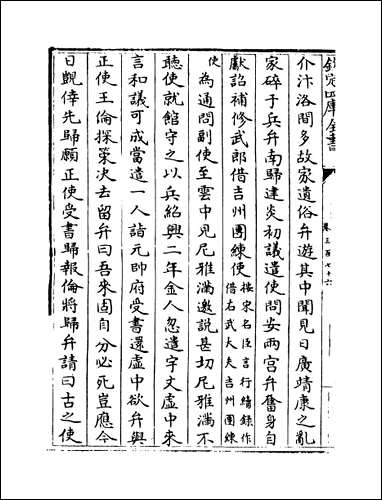 欽定四庫全書
卷三百七十六
介汴洛間多故家遺俗弁遊其中聞見日廣靖康之亂
家碎于兵弁南歸建炎初議遣使問安兩宫弁奮身自
獻詔補修武郎借吉州團練使按宋名臣言行續錄作借右武大夫吉州團練
使為通問副使至雲中見尼雅滿邀說甚切尼雅滿不
聽使就館守之以兵紹興二年金人忽遣宇文虚中來
言和議可成當遣一人詣元帥府受書還虚中欲弁與
正使王倫探策决去留弁曰吾來固自分必死豈應今
日覬倖先歸願正使受書歸報倫將歸弁請曰古之使